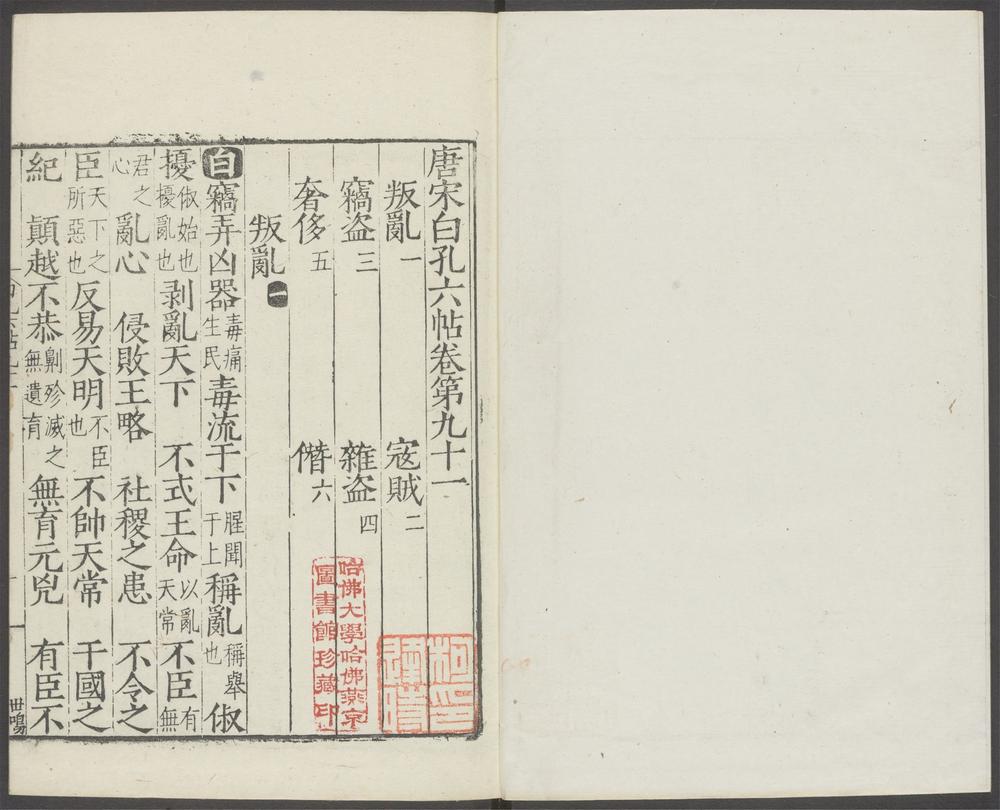 唐宋白孔六帖卷第九十一
叛亂一 寇賊二
竊盗三 雜盗四
奢侈五 僭六
叛亂一
白竊弄凶器毒痡生民毒流于下腥聞于上稱亂稱舉也俶
擾俶始也擾亂也剥亂天下 不式王命以亂天常不臣有無
君之心亂心 侵敗王略 社稷之患 不令之
臣天下之所惡也反易天明不臣也不帥天常 干國之
紀 顚越不恭劓殄滅之無遺育無育元兇 有臣不
世鳴
哈佛大學哈佛燕京
圖書館珍藏印
柯印
逢時